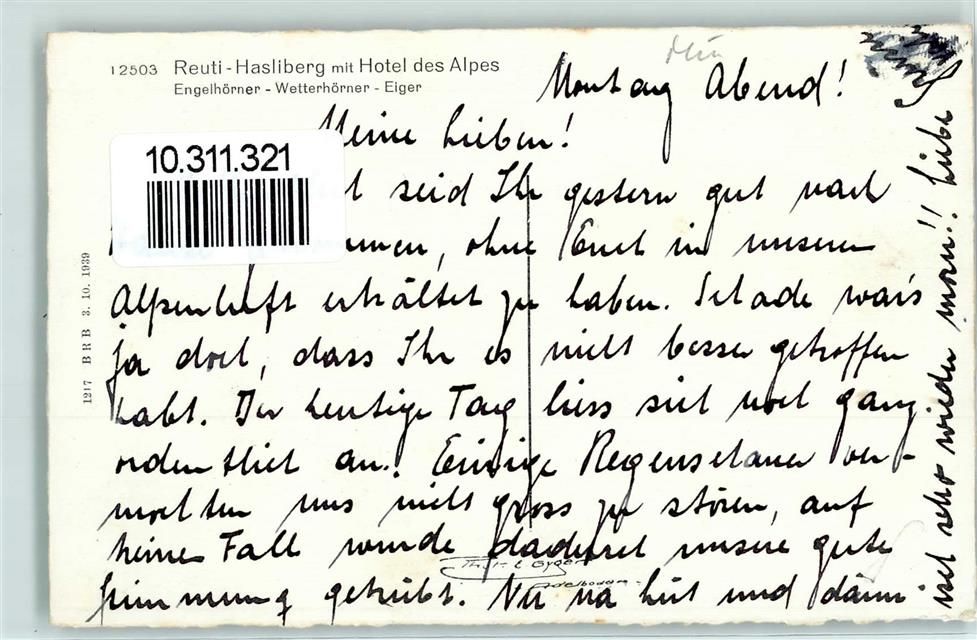 12503 Reuti-Hasliberg mit Hotel des Alpes
Engelhörner - Wetterhörner - Eiger
Montag Abend!
Meine Lieben!
10.311.321
seid Ihr gestern gut nach
ohne Euch in unserer
Alpenluft erkältet zu haben. Schade war's
ja doch, dass Ihr es nicht besser getroffen
habt. Der heutige Tag liess sich noch ganz
ordentlich an! Einige Regenschauer ver-
mochten uns nicht gross zu stören, auf
keinen Fall wurde dadurch unsere gute
Stimmung getrübt. Nu na hüt und dänn
isch scho wieder morn!! Liebe
1217 BRB 3. 10. 1939
Gyger
Adelboden